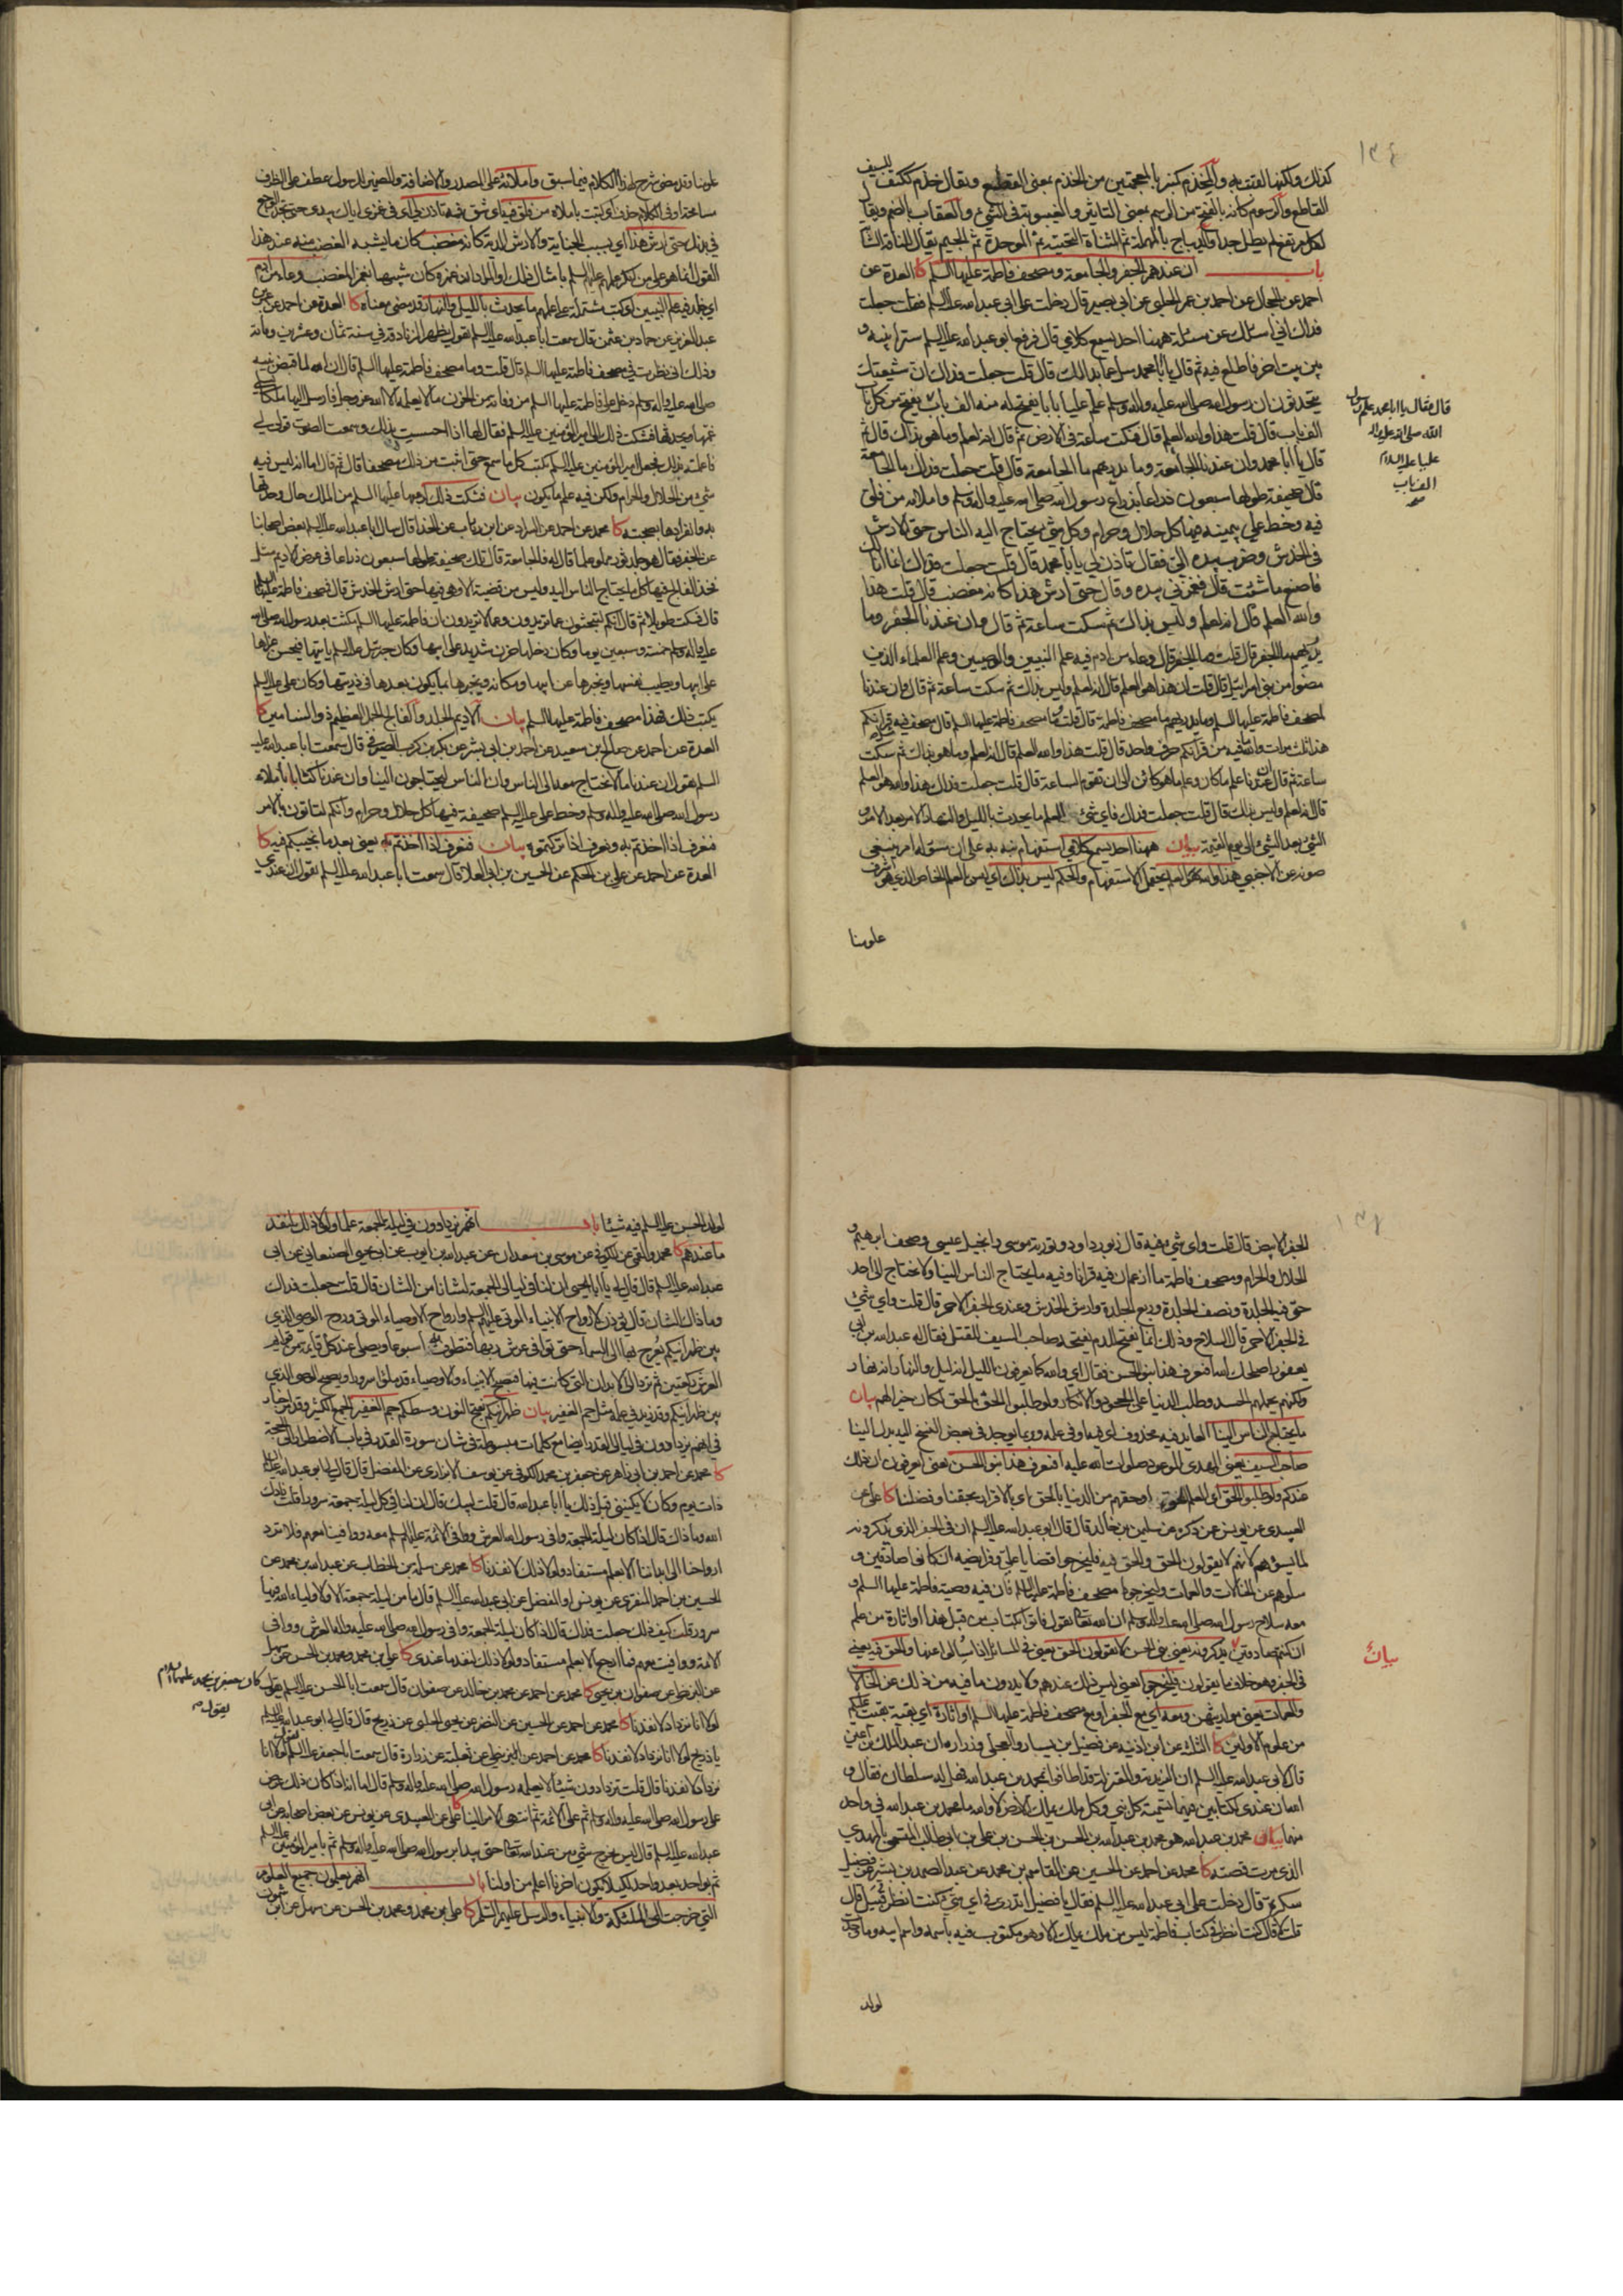 كذلك واكنها الفتنه به والمخذم كمنبر بالمعجمتين من الخذم بمعنى القطع ويقال خذم ككتف للسيف
القاطع والرسوم كانه بالفتح من الرسم بمعنى التاثير والغيبوبة في الشيء والعقاب بالضم ويقال
باب ان عندهم الجفر والجامعة ومصحف فاطمة عليها السلم كا العدة عن
احمد عن الحجال عن احمد بن عمر الحلبي عن ابي بصير قال دخلت على ابي عبد الله عليه السلم فقلت جعلت
فداك اني اسئلك عن مسئلة ههنا احد يسمع كلامي قال فرفع ابو عبد الله عليه السلم سترا بينه و
بين بيت اخر فاطلع فيه ثم قال يا ابا محمد سل عما بدا لك قال قلت جعلت فداك ان شيعتك
يتحدثون ان رسول الله صلى الله عليه واله وسلم علم عليا بابا يفتح له منه الف باب يفتح من كل باب
الف باب قال قلت هذا والله العلم قال فنكت ساعة في الارض ثم قال انه لعلم وما هو بذاك قال ثم
قال يا ابا محمد وان عندنا الجامعة وما يدريهم ما الجامعة قال قلت جعلت فداك ما الجامعة
قال صحيفة طولها سبعون ذراعا بذراع رسول الله صلى الله عليه واله وسلم واملائه من فلق
فيه وخط علي بيمينه فيها كل حلال وحرام وكل شيء يحتاج اليه الناس حتى الارش
في الخدش وضرب بيده الي فقال تاذن لي يا ابا محمد قال قلت جعلت فداك انما انا لك
فاصنع ما شئت قال فغمزني بيده وقال حتى ارش هذا كانه مغضب قال قلت هذا
والله العلم قال انه لعلم وليس بذاك ثم سكت ساعة ثم قال وان عندنا الجفر وما
يدريهم ما الجفر قال قلت وما الجفر قال وعاء من ادم فيه علم النبيين والوصيين وعلم العلماء الذين
مضوا من بني اسرائيل قال قلت ان هذا هو العلم قال انه لعلم وليس بذاك ثم سكت ساعة ثم قال وان عندنا
لمصحف فاطمة عليها السلم وما يدريهم ما مصحف فاطمة قال قلت وما مصحف فاطمة عليها السلم قال مصحف فيه مثل قرانكم
هذا ثلث مرات والله ما فيه من قرانكم حرف واحد قال قلت هذا والله العلم قال انه لعلم وما هو بذاك ثم سكت
ساعة ثم قال ان عندنا علم ما كان وعلم ما هو كائن الى ان تقوم الساعة قال قلت جعلت فداك هذا والله هو العلم
قال انه لعلم وليس بذاك قال قلت جعلت فداك فاي شيء العلم قال ما يحدث بالليل والنهار الامر بعد الامر و
الشيء بعد الشيء الى يوم القيمة بيان ههنا احد يسمع كلامي استفهام نبه به على ان مسؤله امر ينبغي
صونه عن الاجنبي هذا والله العلم يحتمل الاستفهام والحكم ليس بذاك اي ليس بالعلم الخاص الذي هو اشرف
علومنا
قال فقال يا ابا محمد علم رسول
الله صلى الله عليه واله
عليا عليه السلام
الف باب
علومنا وقد مضى شرح هذا الكلام فيما سبق واملائه على المصدر والاضافة والضمير للرسول عطف على الظرف
في بدنك حتى ارش هذا اي بسبب الجناية والارش الدية كانه مغضب كان ما يشبه الغضب منه عند هذا
عبد العزيز عن حماد بن عثمن قال سمعت ابا عبد الله عليه السلم يقول تظهر الزنادقة في سنة ثمان وعشرين ومائة
وذلك اني نظرت في مصحف فاطمة عليها السلم قال قلت وما مصحف فاطمة عليها السلم قال ان الله لما قبض نبيه
صلى الله عليه واله وسلم دخل على فاطمة عليها السلم من وفاته من الحزن ما لا يعلمه الا الله عز وجل فارسل اليها ملكا يسلي
غمها ويحدثها فشكت ذلك الى امير المؤمنين عليه السلم فقال لها اذا احسست بذلك وسمعت الصوت قولي لي
فاعلمته بذلك فجعل امير المؤمنين عليه السلم يكتب كل ما سمع حتى اثبت من ذلك مصحفا قال ثم قال اما انه ليس فيه
شيء من الحلال والحرام ولكن فيه علم ما يكون بيان فشكت ذلك
به وانفرادها بصحبته كا محمد عن احمد عن السراد عن ابن رئاب عن الحذاء قال سال ابا عبد الله عليه السلم بعض اصحابنا
عن الجفر فقال هو جلد ثور مملو علما قال له فالجامعة قال تلك صحيفة طولها سبعون ذراعا في عرض الاديم مثل
فخذ الفالج فيها كل ما يحتاج الناس اليه وليس من قضية الا وهي فيها حتى ارش الخدش قال فمصحف فاطمة عليها السلم
قال فسكت طويلا ثم قال انكم لتبحثون عما تريدون وعما لا تريدون ان فاطمة عليها السلم مكثت بعد رسول الله صلى الله
عليه واله وسلم خمسة وسبعين يوما وكان دخلها حزن شديد على ابيها وكان جبرئيل عليه السلم ياتيها فيحسن عزاها
على ابيها ويطيب نفسها ويخبرها عن ابيها ومكانه ويخبرها بما يكون بعدها في ذريتها وكان علي عليه السلم
يكتب ذلك فهذا مصحف فاطمة عليها السلم بيان الاديم الجلد والفالج الجمل العظيم ذو السنامين كا
العدة عن احمد عن صالح بن سعيد عن احمد بن ابي بشر عن بكر بن كرب الصيرفي قال سمعت ابا عبد الله عليه
السلم يقول ان عندنا ما لا نحتاج معه الى الناس وان الناس ليحتاجون الينا وان عندنا كتابا باملاء
رسول الله صلى الله عليه واله وسلم وخط علي عليه السلم صحيفة فيها كل حلال وحرام وانكم لتاتون بالامر
فنعرف اذا اخذتم به ونعرف اذا تركتموه بيان فنعرف اذا اخذتم به يعني بعد ما نجيبكم فيه كا
العدة عن احمد عن علي بن الحكم عن الحسين بن ابي العلا قال سمعت ابا عبد الله عليه السلم يقول ان عندي
الجفر الابيض قال قلت واي شيء فيه قال زبور داود وتورية موسى وانجيل عيسى وصحف ابرهيم و
الحلال والحرام ومصحف فاطمة ما ازعم ان فيه قرانا وفيه ما يحتاج الناس الينا ولا نحتاج الى احد
حتى فيه الجلدة ونصف الجلدة وربع الجلدة وارش الخدش وعندي الجفر الاحمر قال قلت واي شيء
في الجفر الاحمر قال السلاح وذلك انما يفتح للدم يفتحه صاحب السيف للقتل فقال له عبد الله بن ابي
يعفور اصلحك الله ايعرف هذا بنو الحسن فقال اي والله كما يعرفون الليل انه ليل والنهار انه نهار
ولكنهم يحملهم الحسد وطلب الدنيا على الجحود والانكار ولو طلبوا الحق بالحق لكان خيرا لهم بيان
ما يحتاج الناس الينا العايد فيه محذوف اي فيه وفي علمه وربما يوجد في بعض النسخ اليه بدل الينا
صاحب السيف يعني المهدي الموعود صلوات الله عليه
العبيدي عن يونس عن ذكره عن سليمن بن خالد قال قال ابو عبد الله عليه السلم ان في الجفر الذي يذكرونه
لما يسوؤهم لانهم لا يقولون الحق والحق فيه فليخرجوا قضايا علي وفرايضه ان كانوا صادقين و
سلوهم عن الخالات والعمات وليخرجوا مصحف فاطمة عليها السلم فان فيه وصية فاطمة عليها السلم و
معه سلاح رسول الله صلى الله عليه واله وسلم ان الله تعالى يقول فاتوا بكتاب من قبل هذا او اثارة من علم
ان كنتم صادقين
بيان
من علوم الاولين كا الثلثة عن ابن اذينه عن فضيل بن يسار والعجلي وزرارة ان عبد الملك بن اعين
قال لابي عبد الله عليه السلم ان الزيدية والمعتزلة قد اطافوا بمحمد بن عبد الله فهل له سلطان فقال و
الله ان عندي لكتابين فيهما تسمية كل نبي وكل ملك يملك الارض لا والله ما محمد بن عبد الله في واحد
منهما بيان محمد بن عبد الله هو محمد بن عبد الله بن الحسن بن الحسن بن علي بن ابي طالب المسمى بالمهدي
الذي مرت قصته كا محمد عن احمد عن الحسين عن القاسم بن محمد عن عبد الصمد بن بشير عن فضيل
سكرة قال دخلت على ابي عبد الله عليه السلم فقال يا فضيل اتدري في اي شيء كنت انظر قبيل قال
قلت لا قال كنت انظر في كتاب فاطمة ليس من ملك يملك الا وهو مكتوب فيه باسمه واسم ابيه وما وجدت
لولد
لولد الحسن عليه السلم فيه شيئا باب انهم يزدادون في ليلة الجمعة علما ولولا ذلك لنفد
ما عندهم كا محمد والقمي عن الكوفي عن موسى بن سعدان عن عبد الله بن ايوب عن ابي يحيى الصنعاني عن ابي
عبد الله عليه السلم قال قال لي يا ابا يحيى ان لنا في ليالي الجمعة لشانا من الشان قال قلت جعلت فداك
وما ذاك الشان قال يؤذن لارواح الانبياء الموتى عليهم السلم وارواح الاوصياء الموتى وروح الوصي الذي
بين ظهرانيكم يعرج بها الى السماء حتى توافي عرش ربها فتطوف به اسبوعا وتصلي عند كل قائمة من قوائم
العرش ركعتين ثم ترد الى الابدان التي كانت فيها فتصبح الانبياء والاوصياء قد ملؤا سرورا ويصبح الوصي الذي
بين ظهرانيكم وقد زيد في علمه مثل جم الغفير بيان ظهرانيكم بفتح النون وسطكم جم الغفير الجمع الكثير
كا محمد عن احمد بن ابي زاهر عن جعفر بن محمد الكوفي عن يوسف الابزاري عن المفضل قال قال لي ابو عبد الله عليه السلم
ذات يوم وكان لا يكنيني قبل ذلك يا ابا عبد الله قال قلت لبيك قال ان لنا في كل ليلة جمعة سرورا قلت زادك
الله وما ذاك قال اذا كان ليلة الجمعة وافى رسول الله العرش ووافى الائمة عليهم السلم معه ووافينا معهم فلا ترد
ارواحنا الى ابداننا الا بعلم مستفاد ولولا ذلك لانفدنا كا محمد عن سلمة بن الخطاب عن عبد الله بن محمد عن
الحسين بن احمد المنقري عن يونس او المفضل عن ابي عبد الله عليه السلم قال ما من ليلة جمعة الا ولاولياء الله فيها
سرور قلت كيف ذلك جعلت فداك قال اذا كان ليلة الجمعة وافى رسول الله صلى الله عليه واله العرش ووافى
الائمة ووافيت معهم فما ارجع الا بعلم مستفاد ولولا ذلك لنفد ما عندي كا علي بن محمد ومحمد بن الحسن عن سهل
عن البزنطي عن صفوان بن يحيى كا محمد عن احمد عن محمد بن خالد عن صفوان قال سمعت ابا الحسن عليه السلم يقول
كان جعفر بن محمد عليهما السلام
يقول
لولا انا نزداد لانفدنا كا محمد عن احمد عن الحسين عن النضر عن يحيى الحلبي عن ذريح قال قال لي ابو عبد الله عليه السلم
يا ذريح لولا انا نزداد لانفدنا كا محمد عن احمد عن البزنطي عن ثعلبة عن زرارة قال سمعت ابا جعفر عليه السلم يقول لولا انا
نزداد لانفدنا قال قلت تزدادون شيئا لا يعلمه رسول الله صلى الله عليه واله وسلم قال اما انه اذا كان ذلك عرض
على رسول الله صلى الله عليه واله وسلم ثم على الائمة ثم انتهى الامر الينا كا علي عن العبيدي عن يونس عن بعض اصحابه عن ابي
عبد الله عليه السلم قال ليس يخرج شيء من عند الله تعالى حتى يبدا برسول الله صلى الله عليه واله وسلم ثم بامير المؤمنين عليه السلم
ثم بواحد بعد واحد لكيلا يكون اخرنا اعلم من اولنا باب انهم يعلمون جميع العلوم
التي خرجت الى الملئكة والانبياء والرسل عليهم السلم كا علي بن محمد ومحمد بن الحسن عن سهل عن ابن شمون